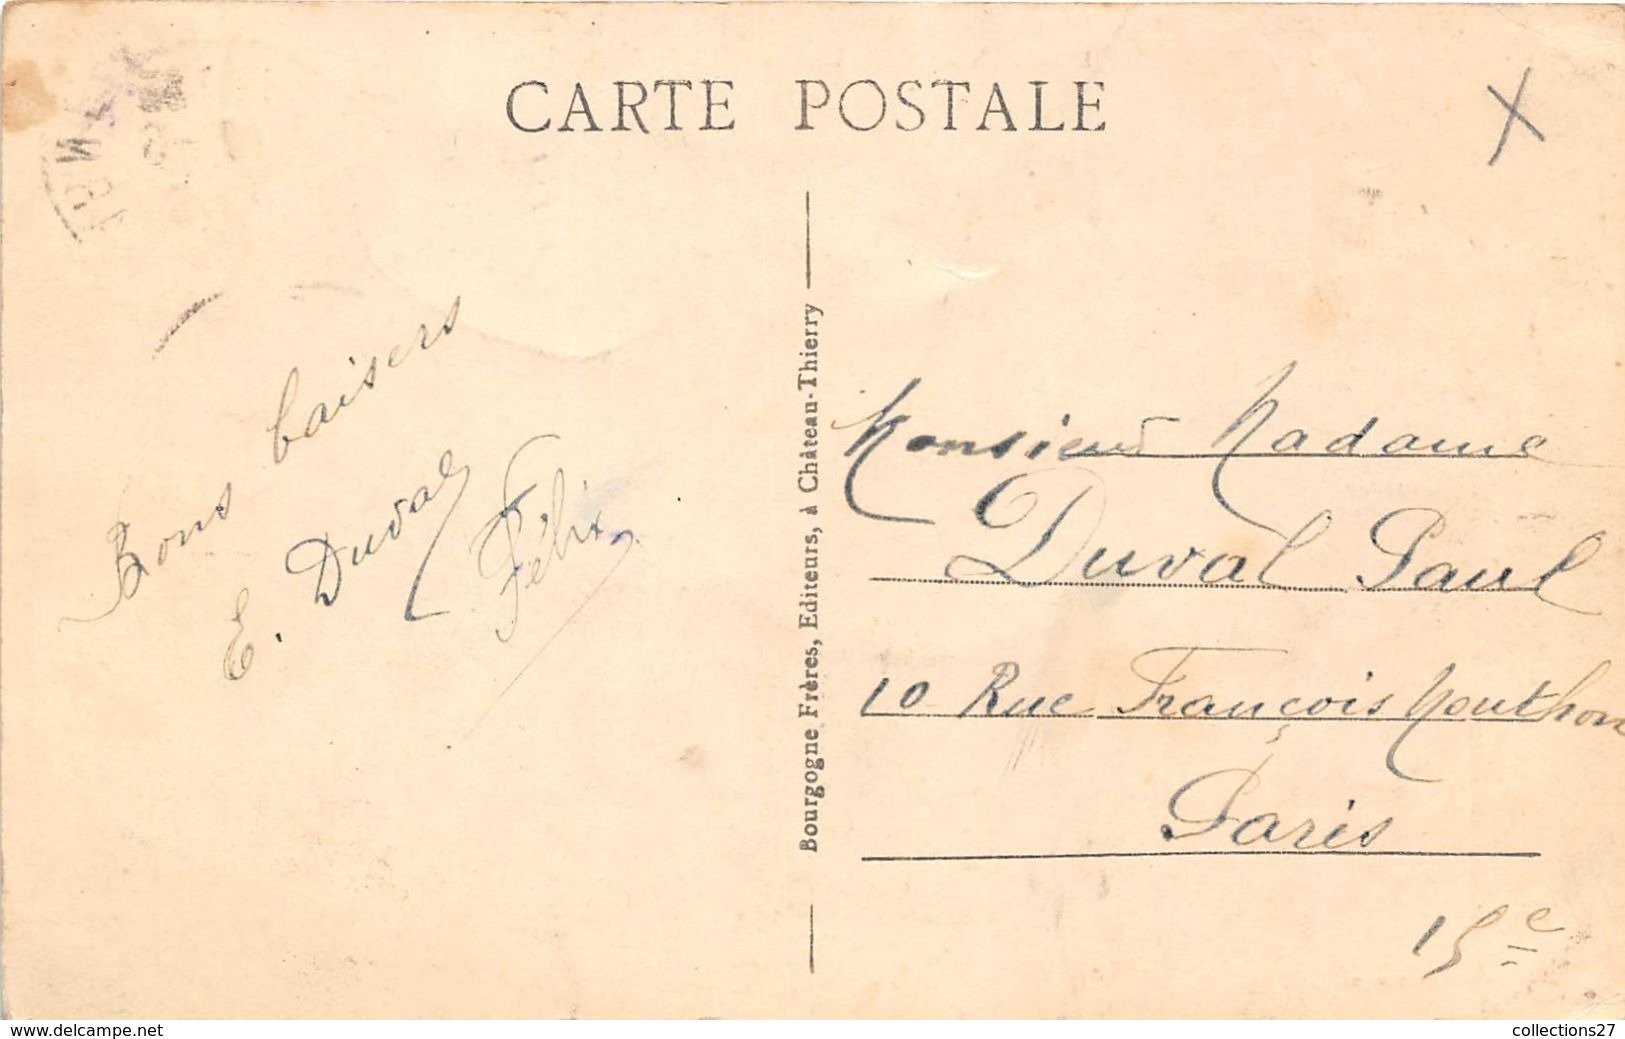 CARTE POSTALE
X
Bons baisers
E. Duval
Félix
Bourgogne Frères, Editeurs, à Château-Thierry
Monsieur Madame
Duval Paul
10 Rue François Mouthon
Paris
15e
www.delcampe.net
collections27